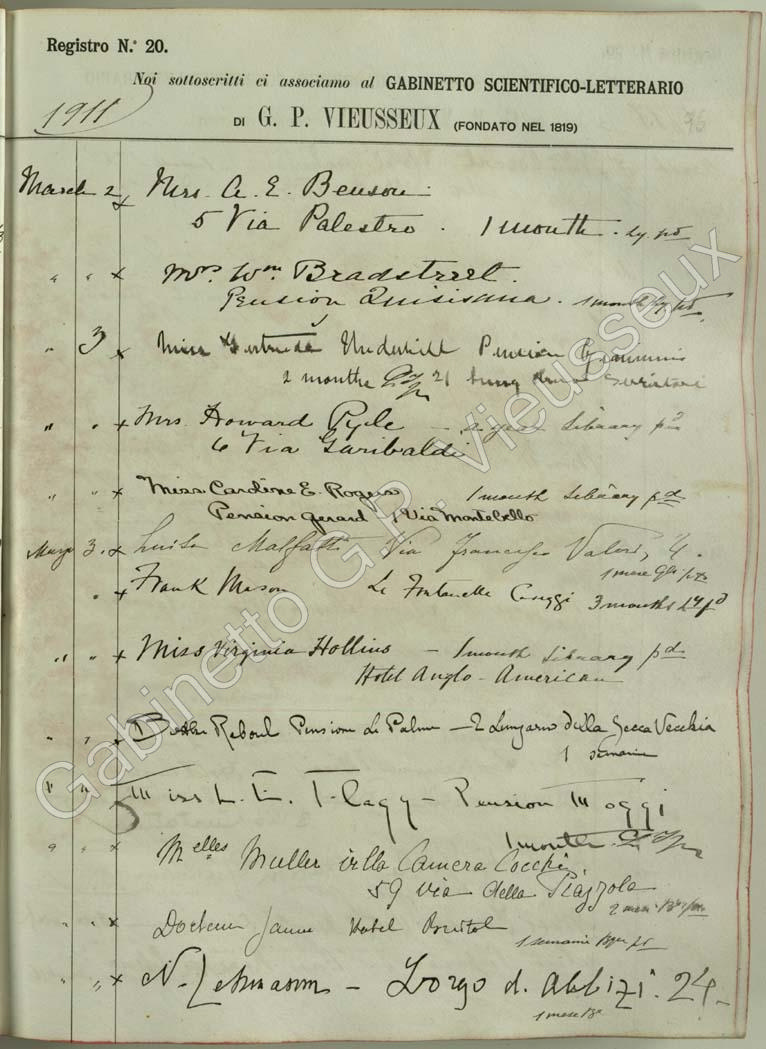 Registro N.º 20.
Noi sottoscritti ci associamo al GABINETTO SCIENTIFICO-LETTERARIO
1911
DI G. P. VIEUSSEUX (FONDATO NEL 1819)
March 2 x Mrs. A. E. Benson
5 Via Palestro. 1 month. Ly. pd
" " x Mrs. Wm. Bradstreet.
Pension Quisisana. 1 month Ly pd.
" 3 x Miss Gertrude Underhill Pension
2 months
" " x Mrs. Howard Pyle – a year Library pd
6 Via Garibaldi
" " x Miss Caroline E. Rogers 1 month Library pd
Pension Gerard 1 Via Montebello
Marzo 3. x Luisa Malfatti Via Francesco Valori, 4.
1 mese
" x Frank Mason Le Fontanelle Careggi 3 months Ly pd
" " x Miss Virginia Hollins – 1 month Library pd
Hotel Anglo-American
" " x Reboul Pensione Le Palme – 2 Lungarno della Zecca Vecchia
1
" " Miss L. E. Flagg – Pension Moggi
1 month
" " x Melles Muller villa Camera Cocchi
59 via della Piazzola
2 mesi
" x Docteur Hotel Bristol
1 semaine
" " x N. – Borgo d. Albizi. 24 –
1 mese
Gabinetto G.P. Vieusseux